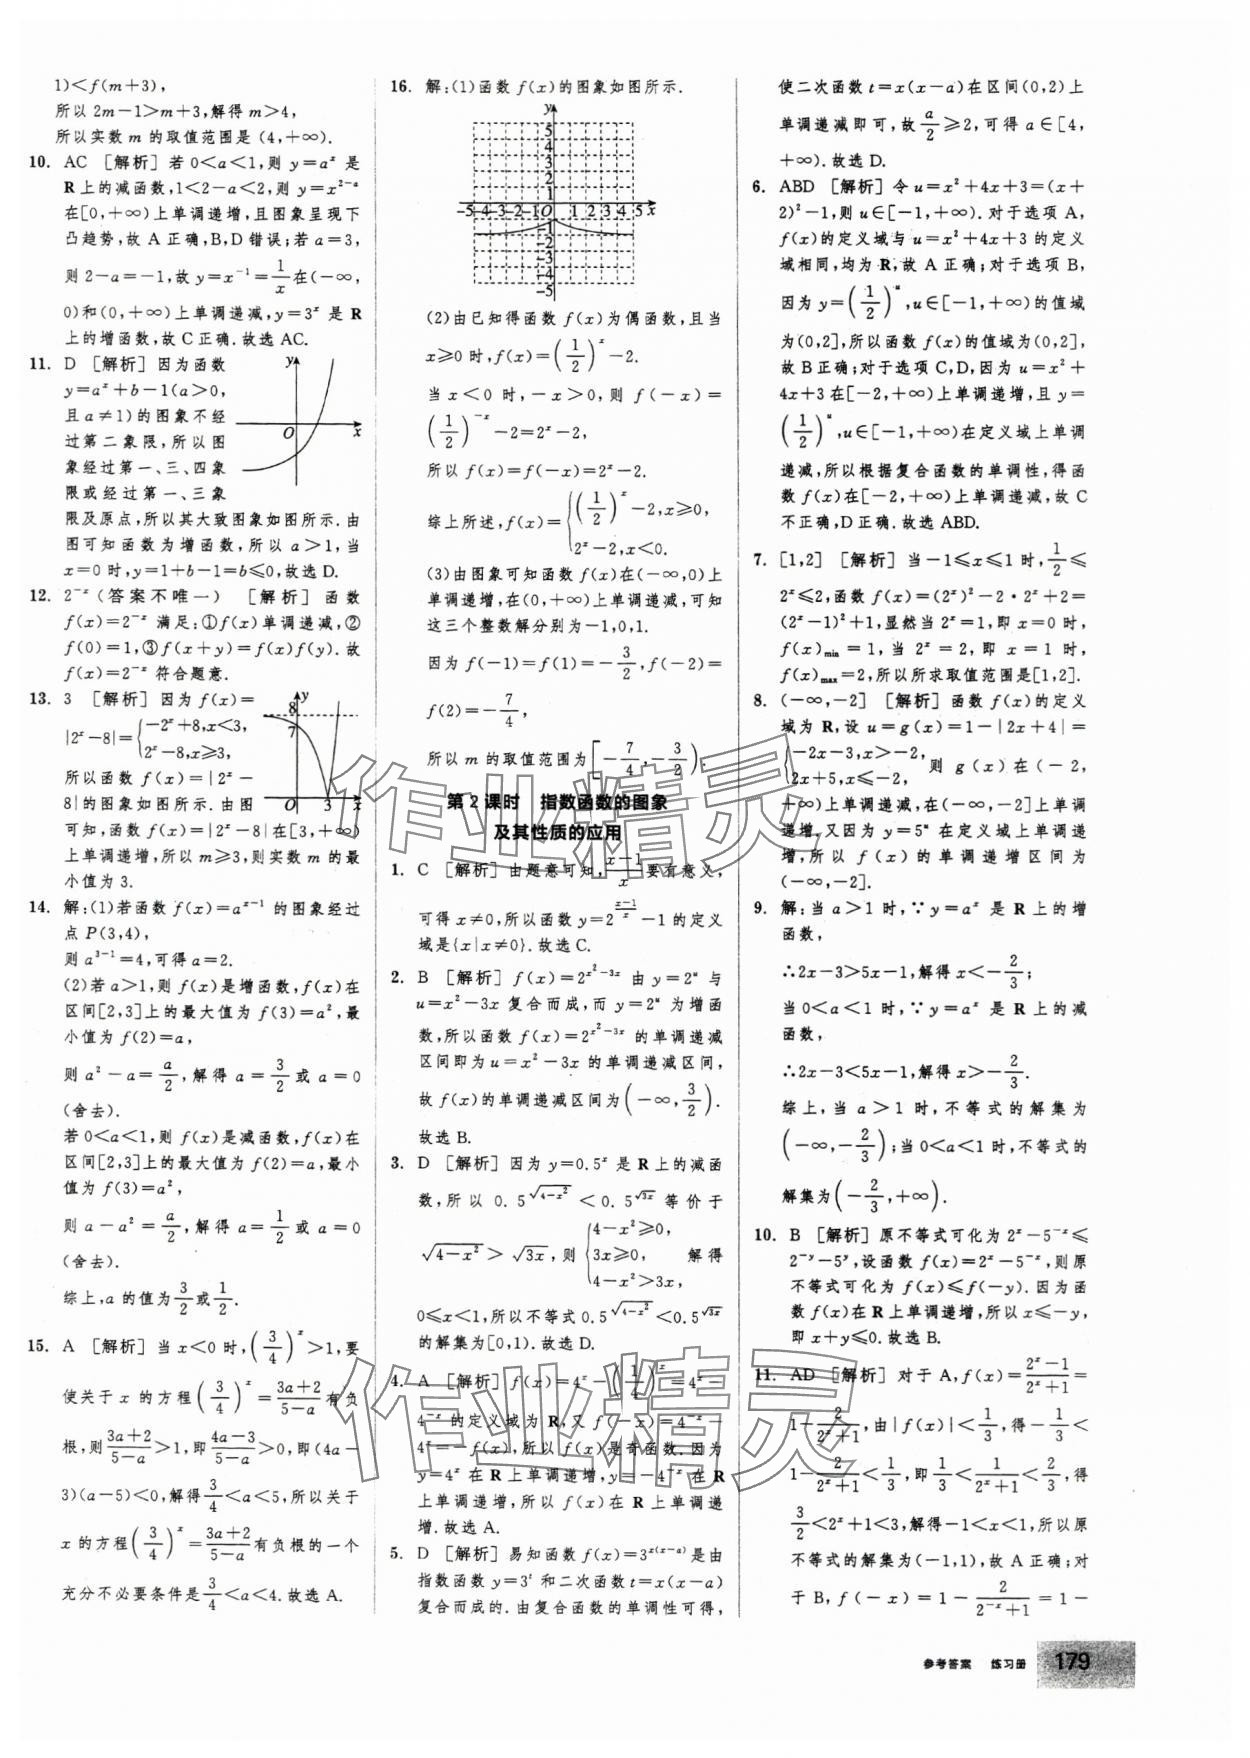 1)<f(m+3),
所以 2m-1>m+3,解得 m>4,
所以实数 m 的取值范围是 (4,+∞).
10. AC [解析] 若 0<a<1,则 y=a^x 是
R 上的减函数,1<2-a<2,则 y=x^{2-a}
在[0,+∞)上单调递增,且图象呈现下
凸趋势,故 A 正确,B,D 错误;若 a=3,
则 2-a=-1,故 y=x^{-1}=1/x 在(-∞,
0)和(0,+∞)上单调递减,y=3^x 是 R
上的增函数,故 C 正确.故选 AC.
11. D [解析] 因为函数
y=a^x+b-1(a>0,
且 a≠1)的图象不经
过第二象限,所以图
象经过第一、三、四象
限或经过第一、三象
限及原点,所以其大致图象如图所示.由
图可知函数为增函数,所以 a>1,当
x=0 时,y=1+b-1=b≤0,故选 D.
y
O
x
12. 2^{-x}(答案不唯一) [解析] 函数
f(x)=2^{-x} 满足:①f(x)单调递减,②
f(0)=1,③f(x+y)=f(x)f(y).故
f(x)=2^{-x} 符合题意.
13. 3 [解析] 因为 f(x)=
|2^x-8|={-2^x+8,x<3,
2^x-8,x≥3,
所以函数 f(x)=|2^x-
8|的图象如图所示.由图
可知,函数 f(x)=|2^x-8|在[3,+∞)
上单调递增,所以 m≥3,则实数 m 的最
小值为 3.
y
8
7
O 3 x
14. 解:(1)若函数 f(x)=a^{x-1} 的图象经过
点 P(3,4),
则 a^{3-1}=4,可得 a=2.
(2)若 a>1,则 f(x)是增函数,f(x)在
区间[2,3]上的最大值为 f(3)=a²,最
小值为 f(2)=a,
则 a²-a=a/2,解得 a=3/2 或 a=0
(舍去).
若 0<a<1,则 f(x)是减函数,f(x)在
区间[2,3]上的最大值为 f(2)=a,最小
值为 f(3)=a²,
则 a-a²=a/2,解得 a=1/2 或 a=0
(舍去).
综上,a 的值为 3/2 或 1/2.
15. A [解析] 当 x<0 时,(3/4)^x>1,要
使关于 x 的方程(3/4)^x=(3a+2)/(5-a)有负
根,则(3a+2)/(5-a)>1,即(4a-3)/(5-a)>0,即(4a-
3)(a-5)<0,解得 3/4<a<5,所以关于
x 的方程(3/4)^x=(3a+2)/(5-a)有负根的一个
充分不必要条件是 3/4<a<4.故选 A.
16. 解:(1)函数 f(x)的图象如图所示.
y
5
4
3
2
1
-5-4-3-2-1O 1 2 3 4 5 x
-1
-2
-3
-4
-5
(2)由已知得函数 f(x)为偶函数,且当
x≥0 时,f(x)=(1/2)^x-2.
当 x<0 时,-x>0,则 f(-x)=
(1/2)^{-x}-2=2^x-2,
所以 f(x)=f(-x)=2^x-2.
综上所述,f(x)={(1/2)^x-2,x≥0,
2^x-2,x<0.
(3)由图象可知函数 f(x)在(-∞,0)上
单调递增,在(0,+∞)上单调递减,可知
这三个整数解分别为-1,0,1.
因为 f(-1)=f(1)=-3/2,f(-2)=
f(2)=-7/4,
所以 m 的取值范围为[-7/4,-3/2).
第 2 课时 指数函数的图象
及其性质的应用
1. C [解析] 由题意可知,(x-1)/x 要有意义,
可得 x≠0,所以函数 y=2^{(x-1)/x}-1 的定义
域是{x|x≠0}.故选 C.
2. B [解析] f(x)=2^{x²-3x} 由 y=2^u 与
u=x²-3x 复合而成,而 y=2^u 为增函
数,所以函数 f(x)=2^{x²-3x} 的单调递减
区间即为 u=x²-3x 的单调递减区间,
故 f(x)的单调递减区间为(-∞,3/2).
故选 B.
3. D [解析] 因为 y=0.5^x 是 R 上的减函
数,所以 0.5^{√(4-x²)}<0.5^{√(3x)} 等价于
√(4-x²)>√(3x),则{4-x²≥0,
3x≥0,
4-x²>3x, 解得
0≤x<1,所以不等式 0.5^{√(4-x²)}<0.5^{√(3x)}
的解集为[0,1).故选 D.
4. A [解析] f(x)=4^x-(1/4)^x=4^x-
4^{-x} 的定义域为 R,又 f(-x)=4^{-x}-
4^x=-f(x),所以 f(x)是奇函数.因为
y=4^x 在 R 上单调递增,y=-4^{-x} 在 R
上单调递增,所以 f(x)在 R 上单调递
增.故选 A.
5. D [解析] 易知函数 f(x)=3^{x(x-a)}是由
指数函数 y=3^t 和二次函数 t=x(x-a)
复合而成的.由复合函数的单调性可得,
使二次函数 t=x(x-a)在区间(0,2)上
单调递减即可,故 a/2≥2,可得 a∈[4,
+∞).故选 D.
6. ABD [解析] 令 u=x²+4x+3=(x+
2)²-1,则 u∈[-1,+∞).对于选项 A,
f(x)的定义域与 u=x²+4x+3 的定义
域相同,均为 R,故 A 正确;对于选项 B,
因为 y=(1/2)^u,u∈[-1,+∞)的值域
为(0,2],所以函数 f(x)的值域为(0,2],
故 B 正确;对于选项 C,D,因为 u=x²+
4x+3 在[-2,+∞)上单调递增,且 y=
(1/2)^u,u∈[-1,+∞)在定义域上单调
递减,所以根据复合函数的单调性,得函
数 f(x)在[-2,+∞)上单调递减,故 C
不正确,D 正确.故选 ABD.
7. [1,2] [解析] 当-1≤x≤1 时,1/2≤
2^x≤2,函数 f(x)=(2^x)²-2·2^x+2=
(2^x-1)²+1,显然当 2^x=1,即 x=0 时,
f(x)_min=1,当 2^x=2,即 x=1 时,
f(x)_max=2,所以所求取值范围是[1,2].
8. (-∞,-2] [解析] 函数 f(x)的定义
域为 R,设 u=g(x)=1-|2x+4|=
{-2x-3,x>-2,
2x+5,x≤-2, 则 g(x)在(-2,
+∞)上单调递减,在(-∞,-2]上单调
递增,又因为 y=5^u 在定义域上单调递
增,所以 f(x)的单调递增区间为
(-∞,-2].
9. 解:当 a>1 时,∵y=a^x 是 R 上的增
函数,
∴2x-3>5x-1,解得 x<-2/3;
当 0<a<1 时,∵y=a^x 是 R 上的减
函数,
∴2x-3<5x-1,解得 x>-2/3.
综上,当 a>1 时,不等式的解集为
(-∞,-2/3);当 0<a<1 时,不等式的
解集为(-2/3,+∞).
10. B [解析] 原不等式可化为 2^x-5^{-x}≤
2^{-y}-5^y,设函数 f(x)=2^x-5^{-x},则原
不等式可化为 f(x)≤f(-y).因为函
数 f(x)在 R 上单调递增,所以 x≤-y,
即 x+y≤0.故选 B.
11. AD [解析] 对于 A,f(x)=(2^x-1)/(2^x+1)=
1-2/(2^x+1),由|f(x)|<1/3,得-1/3<
1-2/(2^x+1)<1/3,即 1/3<1/(2^x+1)<2/3,得
3/2<2^x+1<3,解得-1<x<1,所以原
不等式的解集为(-1,1),故 A 正确;对
于 B,f(-x)=1-2/(2^{-x}+1)=1-
作业精灵
作业精灵
参考答案 练习册 179